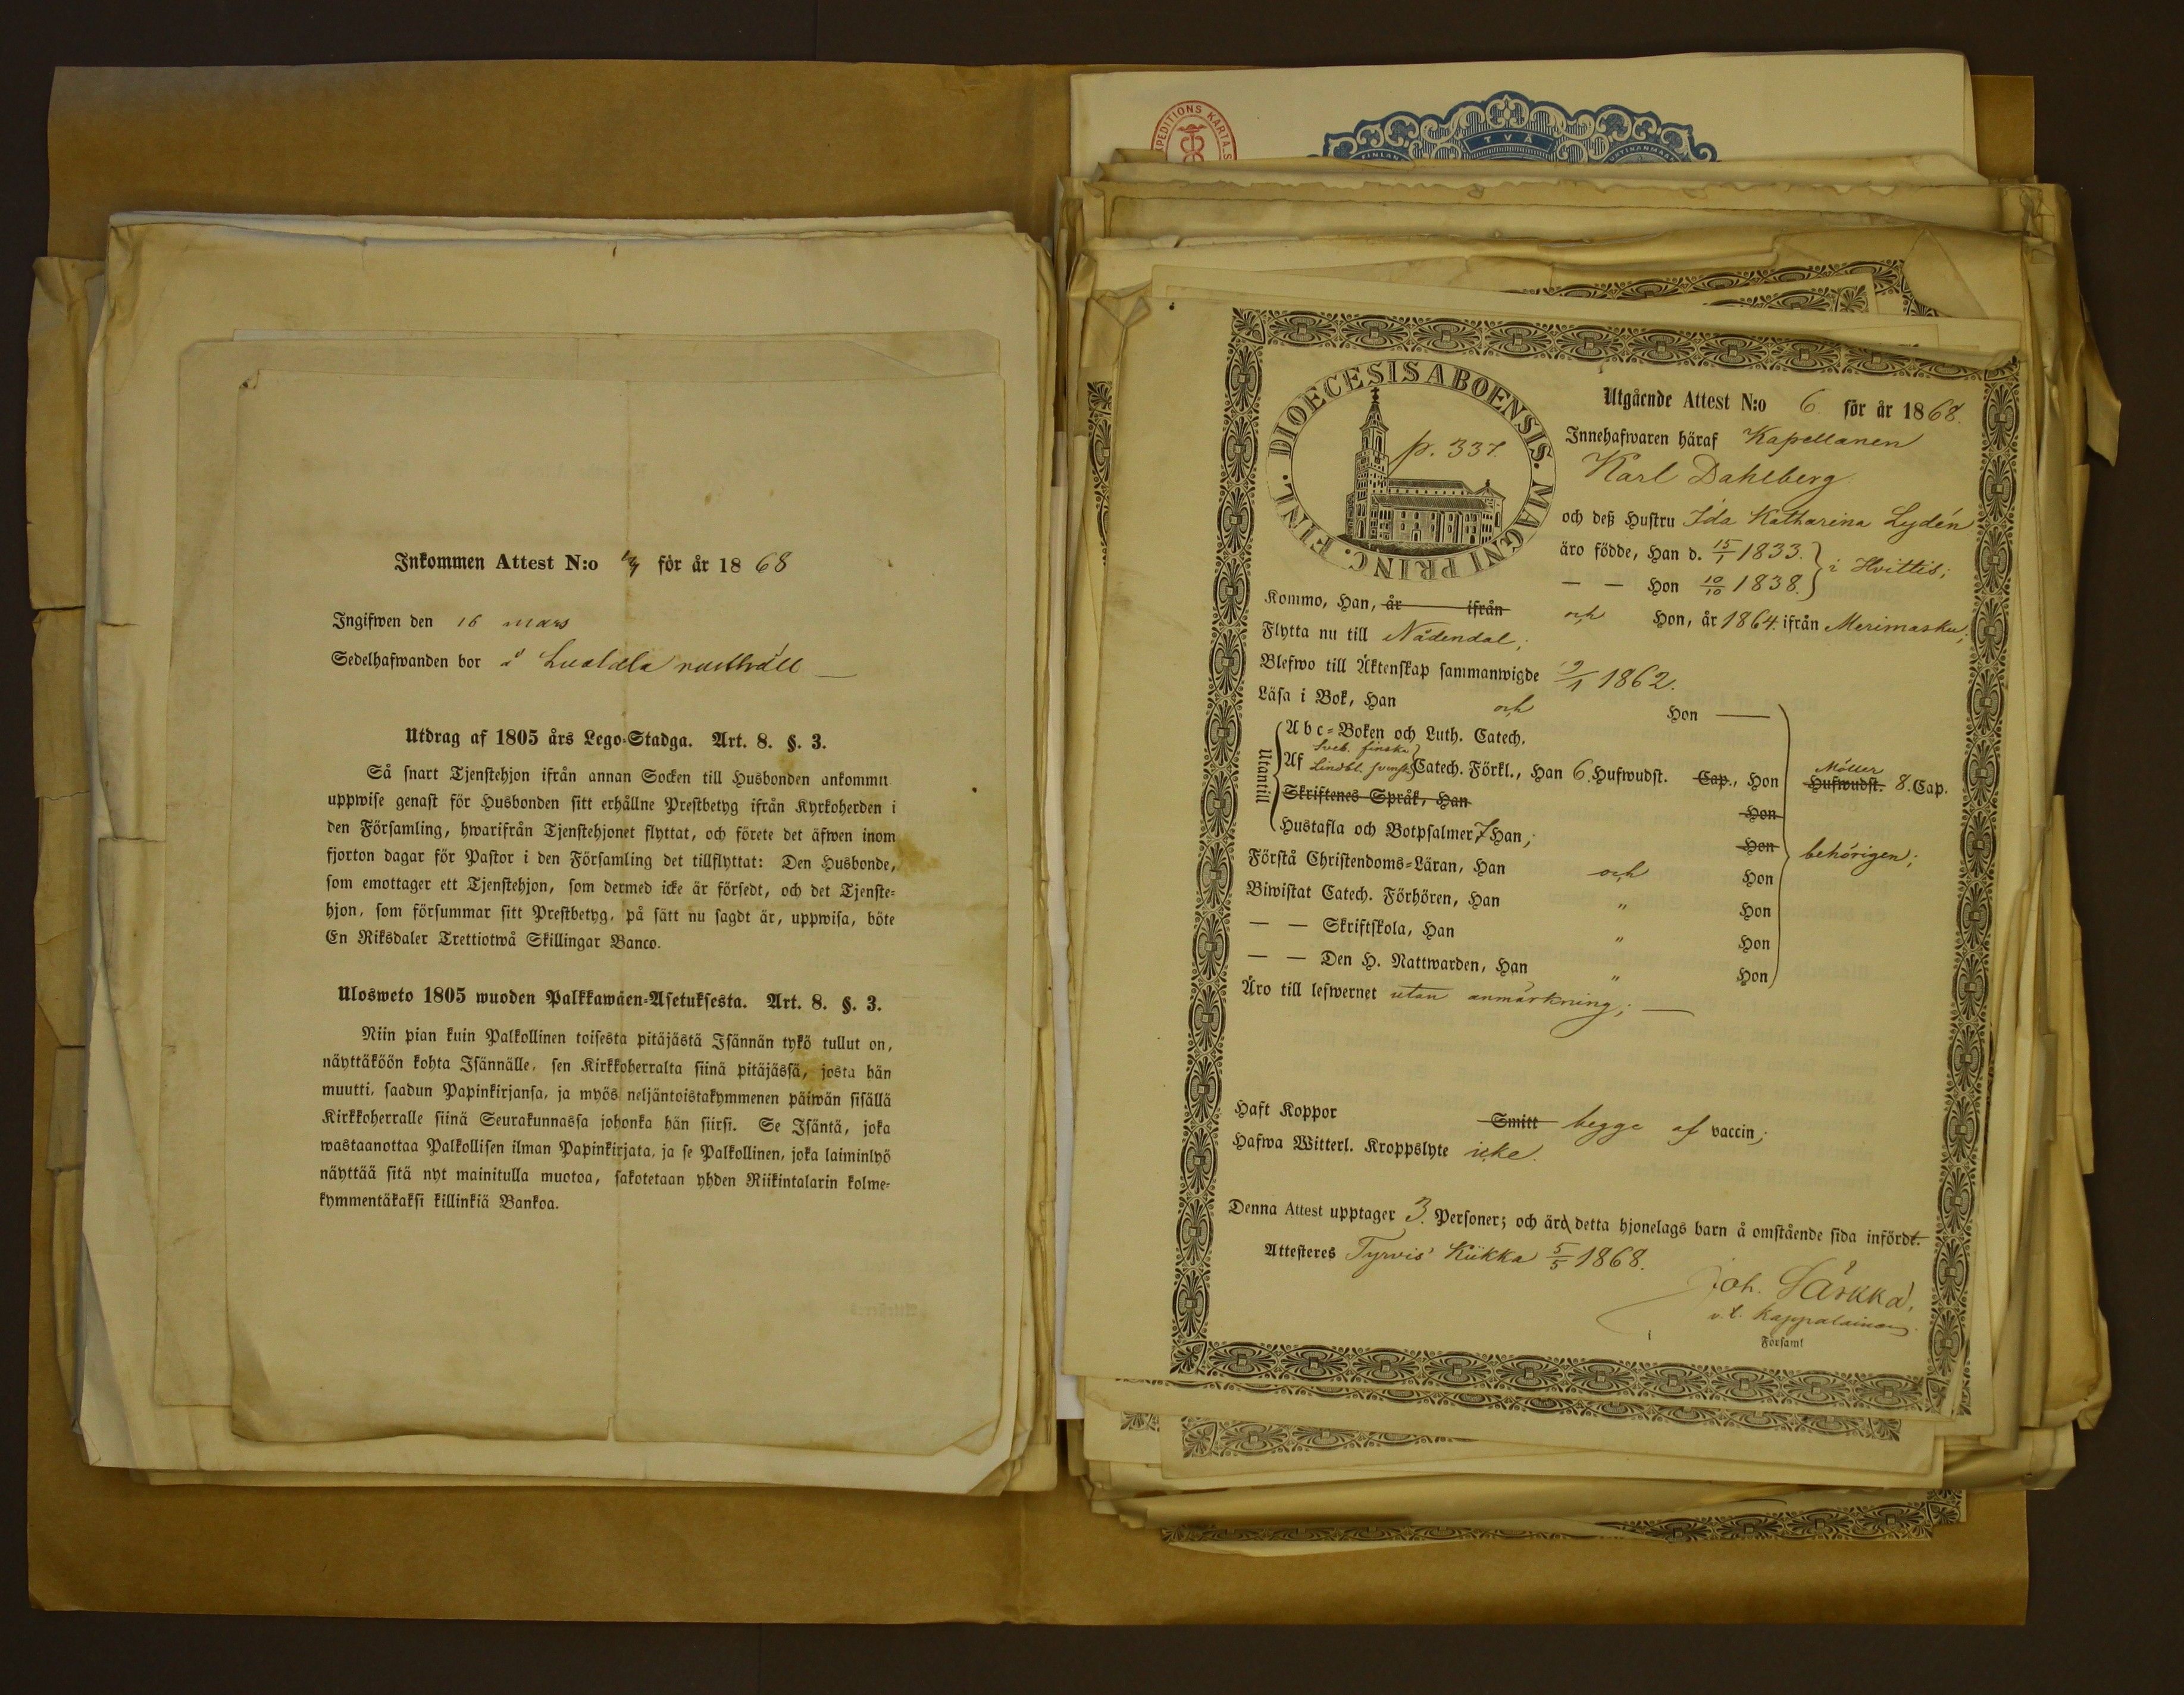 Inkommen Attest N:o för år 1868
Ingifwen den 16 mars
Sedelhafwanden bor å rusthåll —
Utdrag af 1805 års Lego-Stadga. Art. 8. §. 3.
Så snart Tjenstehjon ifrån annan Socken till Husbonden ankommit
uppwise genast för Husbonden sitt erhållne Prestbetyg ifrån Kyrkoherden i
den Församling, hwarifrån Tjenstehjonet flyttat, och förete det äfwen inom
fjorton dagar för Pastor i den Församling det tillflyttat: Den Husbonde,
som emottager ett Tjenstehjon, som dermed icke är försedt, och det Tjenste-
hjon, som försummar sitt Prestbetyg, på sätt nu sagdt är, uppwisa, böte
En Riksdaler Trettiotwå Skillingar Banco.
Ulosweto 1805 wuoden Palkkawäen-Asetuksesta. Art. 8. §. 3.
Niin pian kuin Palkollinen toisesta pitäjästä Isännän tykö tullut on,
näyttäköön kohta Isännälle, sen Kirkkoherralta siinä pitäjässä, josta hän
muutti, saadun Papinkirjansa, ja myös neljäntoistakymmenen päiwän sisällä
Kirkkoherralle siinä Seurakunnassa johonka hän siirsi. Se Isäntä, joka
wastaanottaa Palkollisen ilman Papinkirjata, ja se Palkollinen, joka laiminlyö
näyttää sitä nyt mainitulla muotoa, sakotetaan yhden Riikintalarin kolme-
kymmentäkaksi killinkiä Bankoa.
PEDITIONS KARTA.S
TVÅ
FINLAN
DIOECESIS ABOENSIS. MAGNI PRINC. FINL.
p. 337.
Utgående Attest N:o 6. för år 1868.
Innehafwaren häraf Kapellanen
Karl Dahlberg
och deß Hustru Ida Katharina Lydén
äro födde, Han d. 15/1 1833. } i Hvittis;
— — Hon 10/10 1838. }
Kommo, Han, år ifrån och Hon, år 1864. ifrån Merimasku;
Flytta nu till Nådendal;
Blefwo till Äktenskap sammanwigde 9/1 1862.
Läsa i Bok, Han och Hon —
Utantill
Abc-Boken och Luth. Catech.
Sveb. finska
Af Lindbl. svenska Catech. Förkl., Han 6. Hufwudst. Cap., Hon Hufwudst. 8. Cap.
Möller
Skriftenes Språk, Han Hon
Hustafla och Botpsalmer, 7 Han; Hon
behörigen;
Förstå Christendoms-Läran, Han och Hon
Biwistat Catech. Förhören, Han " Hon
— — Skriftskola, Han " Hon
— — Den H. Nattwarden, Han " Hon
Äro till lefwernet utan anmärkning; —
Haft Koppor Smitt begge af vaccin;
Hafwa Witterl. Kroppslyte icke.
Denna Attest upptager 3. Personer; och äro detta hjonelags barn å omstående sida infördt.
Attesteres Tyrvis Kiikka 5/5 1868.
Joh. Särkkä,
v.t. kappalainen.
i Församl